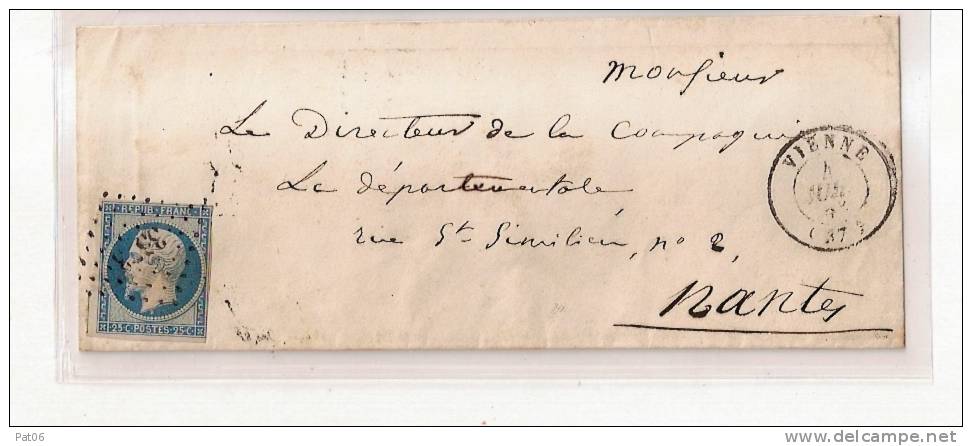 Monsieur
Le Directeur de la Compagnie
La départementale
rue St. Similien, no 2,
Nantes
VIENNE
4
(37)
REPUB. FRANC.
25 C. POSTES 25 C.
Pat06
delcampe.net